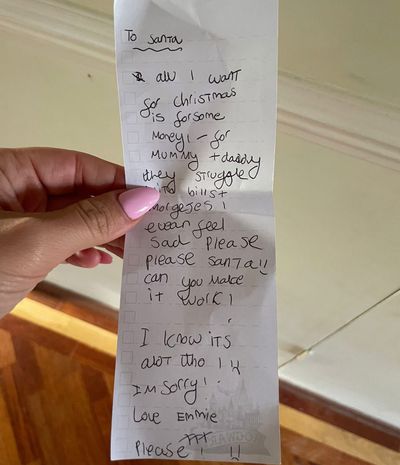 To Santa
all I want
for christmas
is for some
money! - for
mummy + daddy
they struggle
with bills +
morgeses I
evean feel
sad please
please santa!!
can you make
it work!
I know its
alot tho! :(
Im sorry!
Love Emmie
Please !